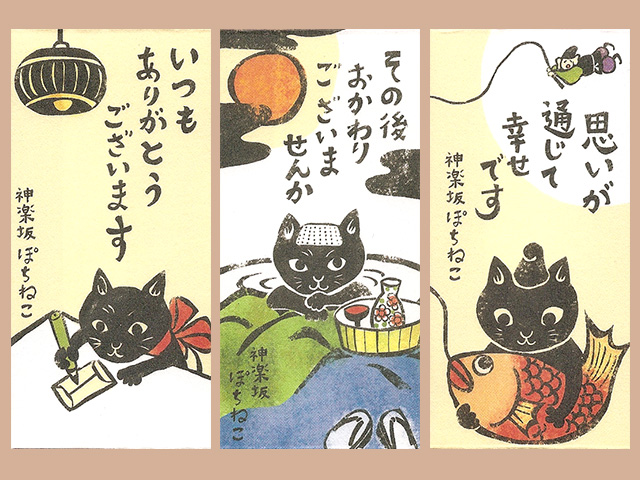 いつも
ありがとう
ございます
神楽坂 ぽちねこ
その後
おかわり
ございま
せんか
神楽坂
ぽちねこ
思いが
通じて
幸せ
です
神楽坂 ぽちねこ